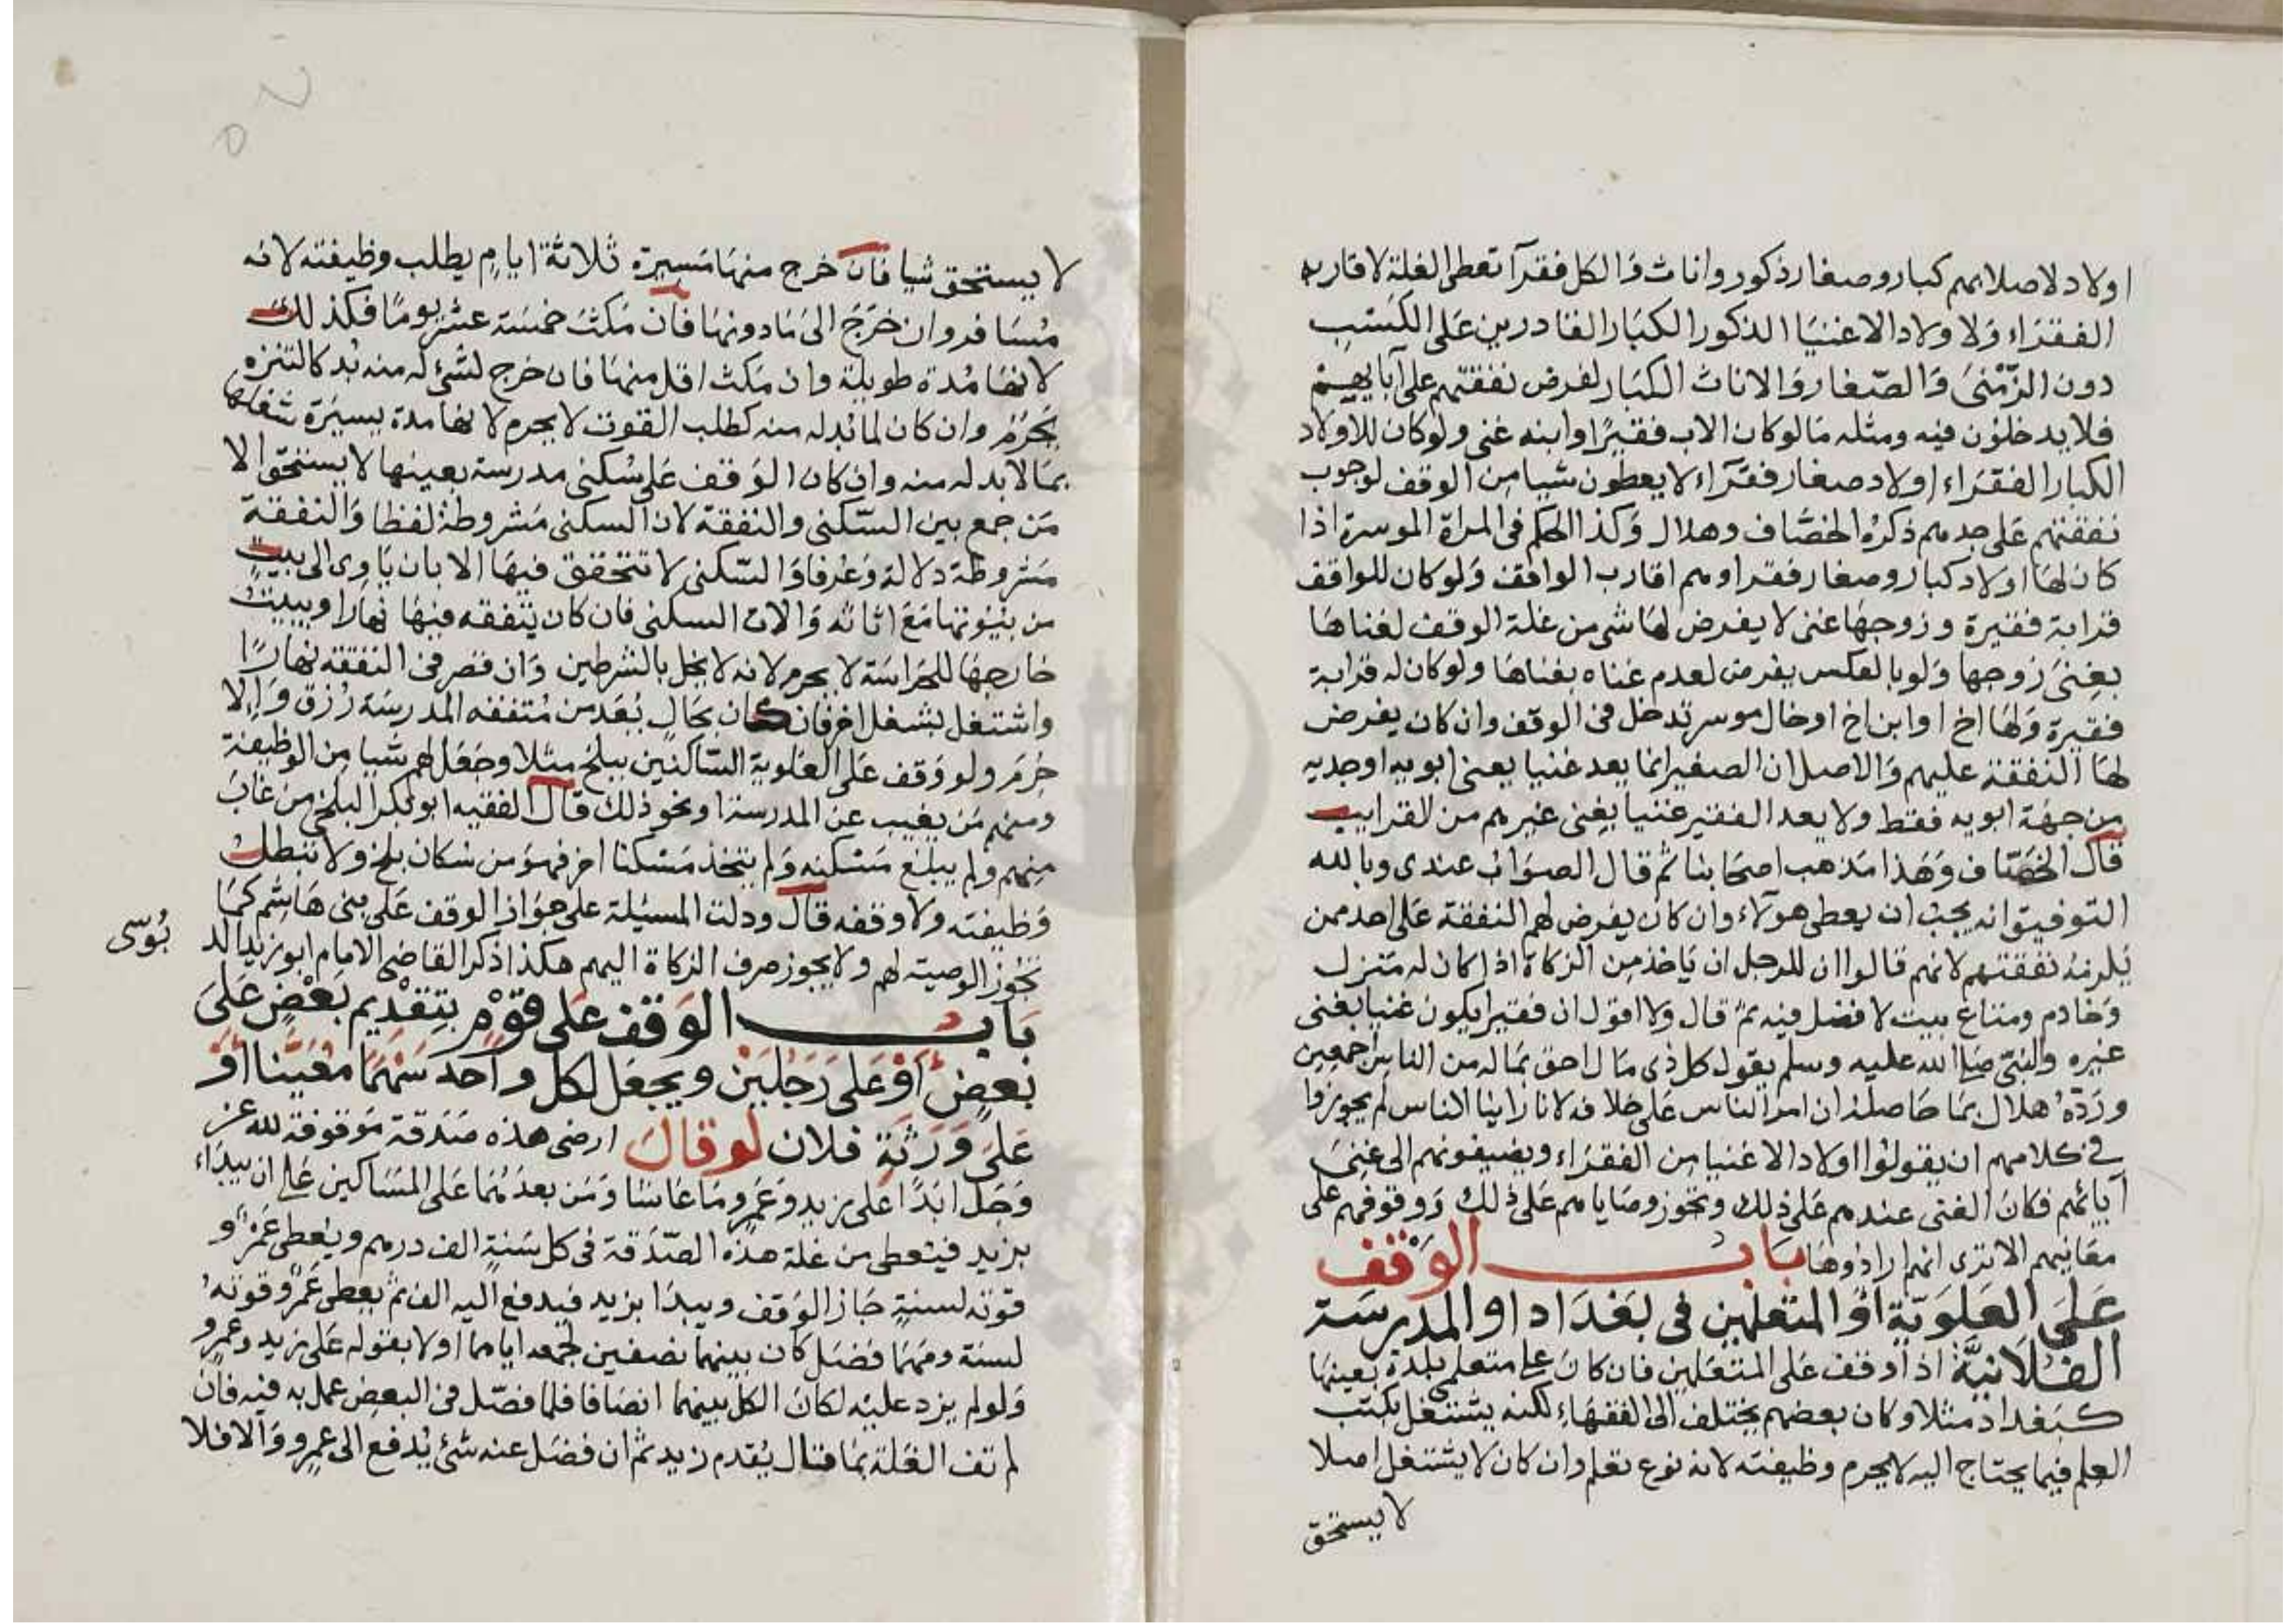 اولاد لاصلابهم كبار وصغار ذكور واناث والكل فقرآ تعطى الغلة لاقاربه
الفقراء ولا ولاد الاغنيا الذكور الكبار القادرين على الكسب
دون الزمنى والصغار والاناث الكبار لفرض نفقتهم على آبايهم
فلا يدخلون فيه ومثله مالوكان الاب فقيرا وابنه غنى ولوكان للاولاد
الكبار الفقراء اولاد صغار فقرآء لا يعطون شيا من الوقف لوجوب
نفقتهم على جدهم ذكره الخصاف وهلال وكذا الحكم فى المراة الموسرة اذا
كان لها اولاد كبار وصغار فقرا وهم اقارب الواقف ولوكان للواقف
قرابة فقيرة وزوجها غنى لا يفرض لها شى من غلة الوقف لغناها
بغنى زوجها ولو بالعكس يفرض لعدم غناه بغناها ولوكان له قرابة
فقيرة ولها اخ او ابن اخ او خال موسر تدخل فى الوقف وان كان يفرض
لها النفقة عليهم والاصل ان الصغير انما يعد غنيا بغنى ابويه او جديه
من جهة ابويه فقط ولا يعد الفقير غنيا بغنى غيرهم من القرايب
قال الخصاف وهذا مذهب اصحابنا ثم قال الصواب عندى وبالله
التوفيق انه يجب ان يعطى هولآء وان كان يفرض لهم النفقة على احد ممن
يلزمه نفقتهم لانهم قالوا ان للرجل ان ياخذ من الزكاة اذا كان له منزل
وخادم ومتاع بيت لا فضل فيه ثم قال ولا اقول ان فقيرا يكون غنيا بغنى
غيره والنبى صلى الله عليه وسلم يقول كل ذى مال احق بماله من الناس اجمعين
ورده هلال بما حاصله ان امر الناس على خلافه لانا راينا الناس لم يجوزوا
فى كلامهم ان يقولوا اولاد الاغنيا من الفقراء ويضيفونهم الى غنى
آبائهم فكان الغنى عندهم على ذلك وتجوز وصاياهم على ذلك ووقوفهم على
معانيهم الا ترى انهم ارادوها باب الوقف
على العلوية او المتعلمين فى بغداد او المدرسة
الفلانية اذا وقف على المتعلمين فان كان على متعلمى بلدة بعينها
كبغداد مثلا وكان بعضهم يختلف الى الفقهاء لكنه يشتغل بكتب
العلم فيما يحتاج اليه لا يحرم وظيفته لانه نوع تعلم وان كان لا يشتغل اصلا
لا يستحق
لا يستحق شيا فان خرج منها مسيرة ثلاثة ايام يطلب وظيفته لانه
مسافر وان خرج الى مادونها فان مكث خمسة عشر يوما فكذلك
لانها مدة طويلة وان مكث اقل منها فان خرج لشئ له منه بد كالتنزه
يحرم وان كان لما لابد له منه كطلب القوت لا يحرم لانها مدة يسيرة شغلها
بما لا بد له منه وان كان الوقف على سكنى مدرسة بعينها لا يستحق الا
من جمع بين السكنى والنفقة لان السكنى مشروطة لفظا والنفقة
مشروطة دلالة وعرفا والسكنى لا تتحقق فيها الا بان ياوى الى بيت
من بيوتها مع اثاثه والات السكنى فان كان يتفقه فيها نهارا ويبيت
خارجها للحراسة لا يحرم لانه لا يخل بالشرطين وان قصر فى التفقه نهارا
واشتغل بشغل اخر فان كان بحال يعد من متفقه المدرسة رزق والا
حرم ولو وقف على العلوية الساكنين ببلخ مثلا وجعل لهم شيا من الوظيفة
ومنهم من يغيب عن المدرسة او نحو ذلك قال الفقيه ابو بكر البلخى من غاب
منهم ولم يبلع مسكنه ولم يتخذ مسكنا اخر فهو من سكان بلخ ولا تبطل
وظيفته ولا وقفه قال ودلت المسئلة على جواز الوقف على بنى هاشم كما
تجوز الوصية لهم ولا يجوز صرف الزكاة اليهم هكذا ذكر القاضى الامام ابو زيد الد
بوسى
باب الوقف على قوم بتقديم بعض على
بعض او على رجلين ويجعل لكل واحد سهما معينا او
على ورثة فلان لو قال ارضى هذه صدقة موقوفة لله عز
وجل ابدا على زيد وعمرو ما عاشا ومن بعدهما على المساكين على ان يبداء
بزيد فيعطى من غلة هذه الصدقة فى كل سنة الف درهم ويعطى عمرو
قوته لسنة جاز الوقف ويبدا بزيد فيدفع اليه الف ثم يعطى عمرو قوته
لسنة ومهما فضل كان بينهما نصفين لجمعه اياهما اولا بقوله على زيد وعمرو
ولو لم يزد عليه لكان الكل بينهما انصافا فلما فصل فى البعض عمل به فيه فان
لم تف الغلة بما قال يقدم زيد ثم ان فضل عنه شئ يدفع الى عمرو والا فلا